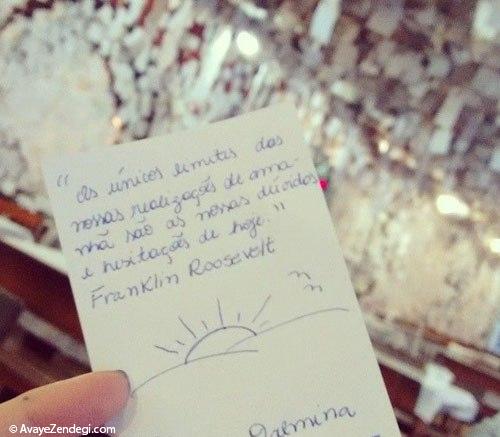 "As únicos limites das
nossas realizações de ama-
nhã são as nossas dúvidas
e hesitações de hoje."
Franklin Roosevelt
Dalmina
© AvayeZendegi.com